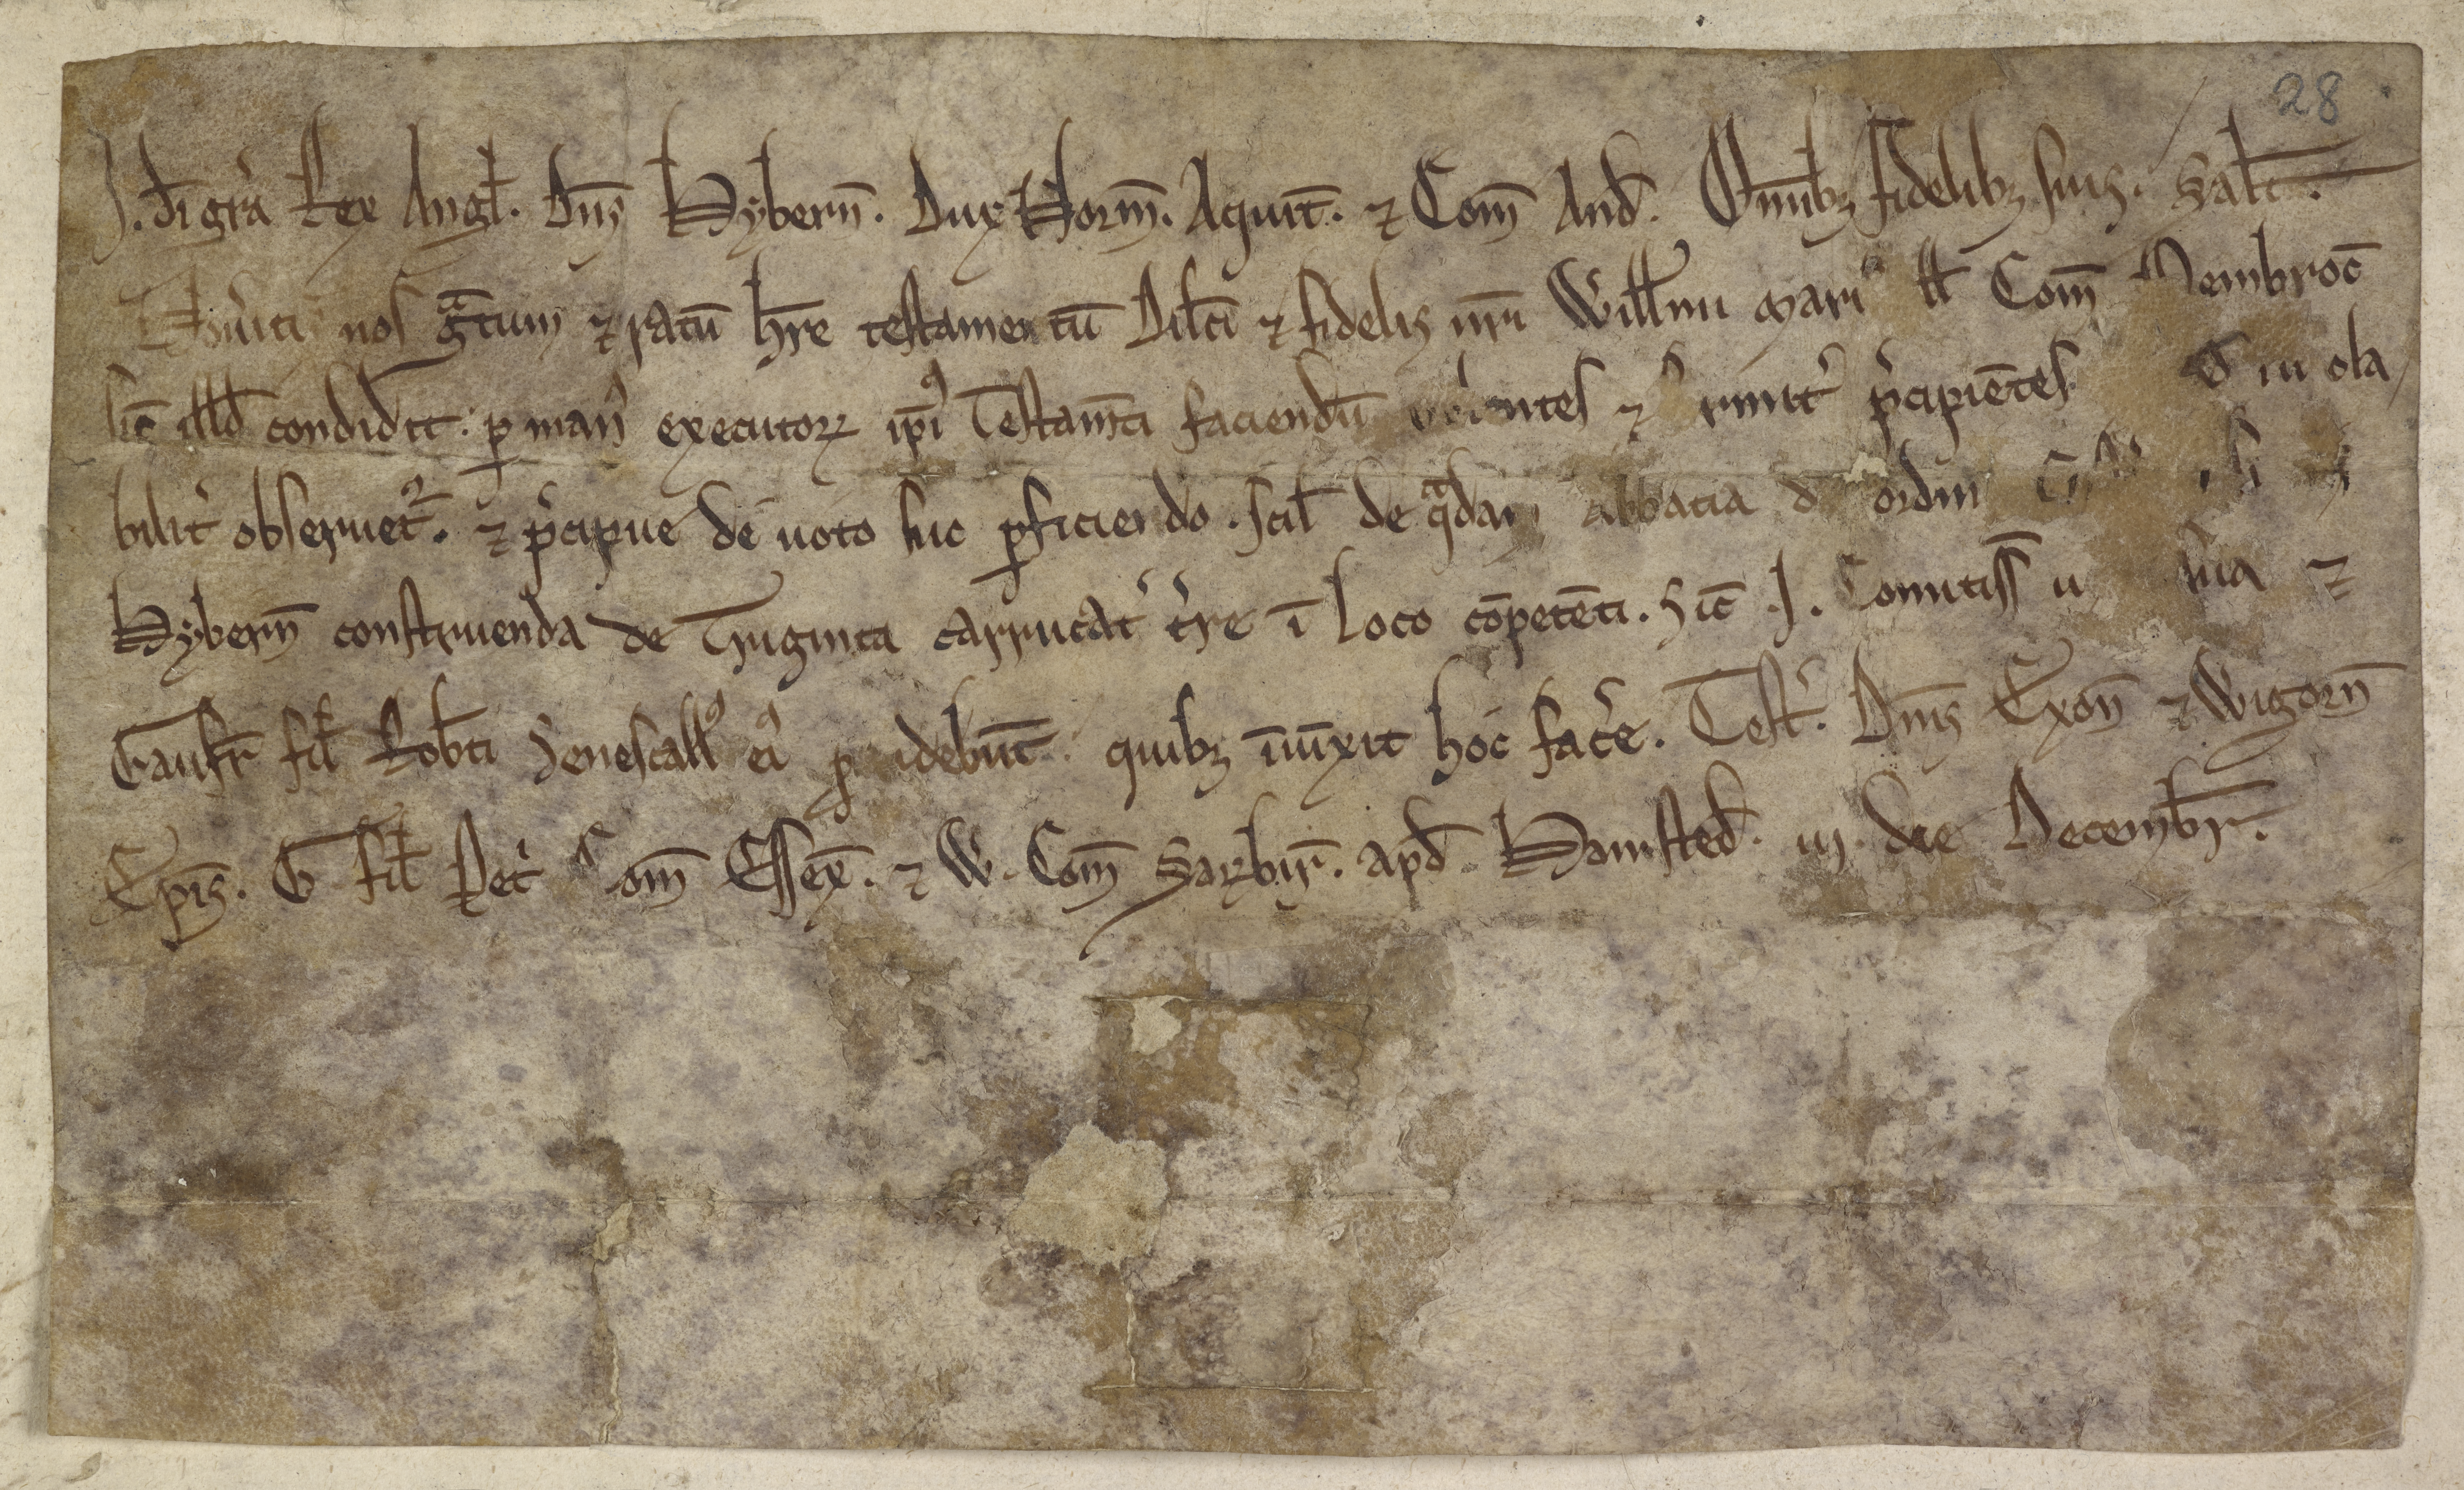 28
J. dī gr̄a Rex Angł. Dn̄s Hybern̄. Dux Norm̄. Aquit̄. ⁊ Com̄ And̄. Om̄ibꝫ fidelibꝫ suis. Salt̄.
nos gͣtum ⁊ ratū hr̄e testamentū Dilc̄i ⁊ fidelis nr̄i Willmi Com̄ Pembroc̄
sic̄ illđ condidit. ꝑ man᷒ executoꝝ ip̄iꝰ Testam̄ti faciendū ⁊ p᷒cipiēt̄es iuiola
bilit᷒ obseruet᷒. ⁊ p᷒cipue de uoto suo ꝑficiendo. scil̄ de qͣdam abbatia d ordin
Hybern̄ construenda de Triginta carrucat᷒ t᷒re ī loco cōpetēti. Sic̄ .J. Comitiss̄ sua ⁊
Gaufr̄ fil̄ Rob̄ti Senescallꝰ eiꝰ quibꝫ īiūxit hoc fac᷒e. Test᷒. Dn̄is Exon̄ ⁊ Wigorn̄
Ep̄is. G. fil̄ Pet᷒ Com̄ Essex̄. ⁊ W. Com̄ Sarbir̄. apđ Hamsteđ. iij. die Decembr̄.